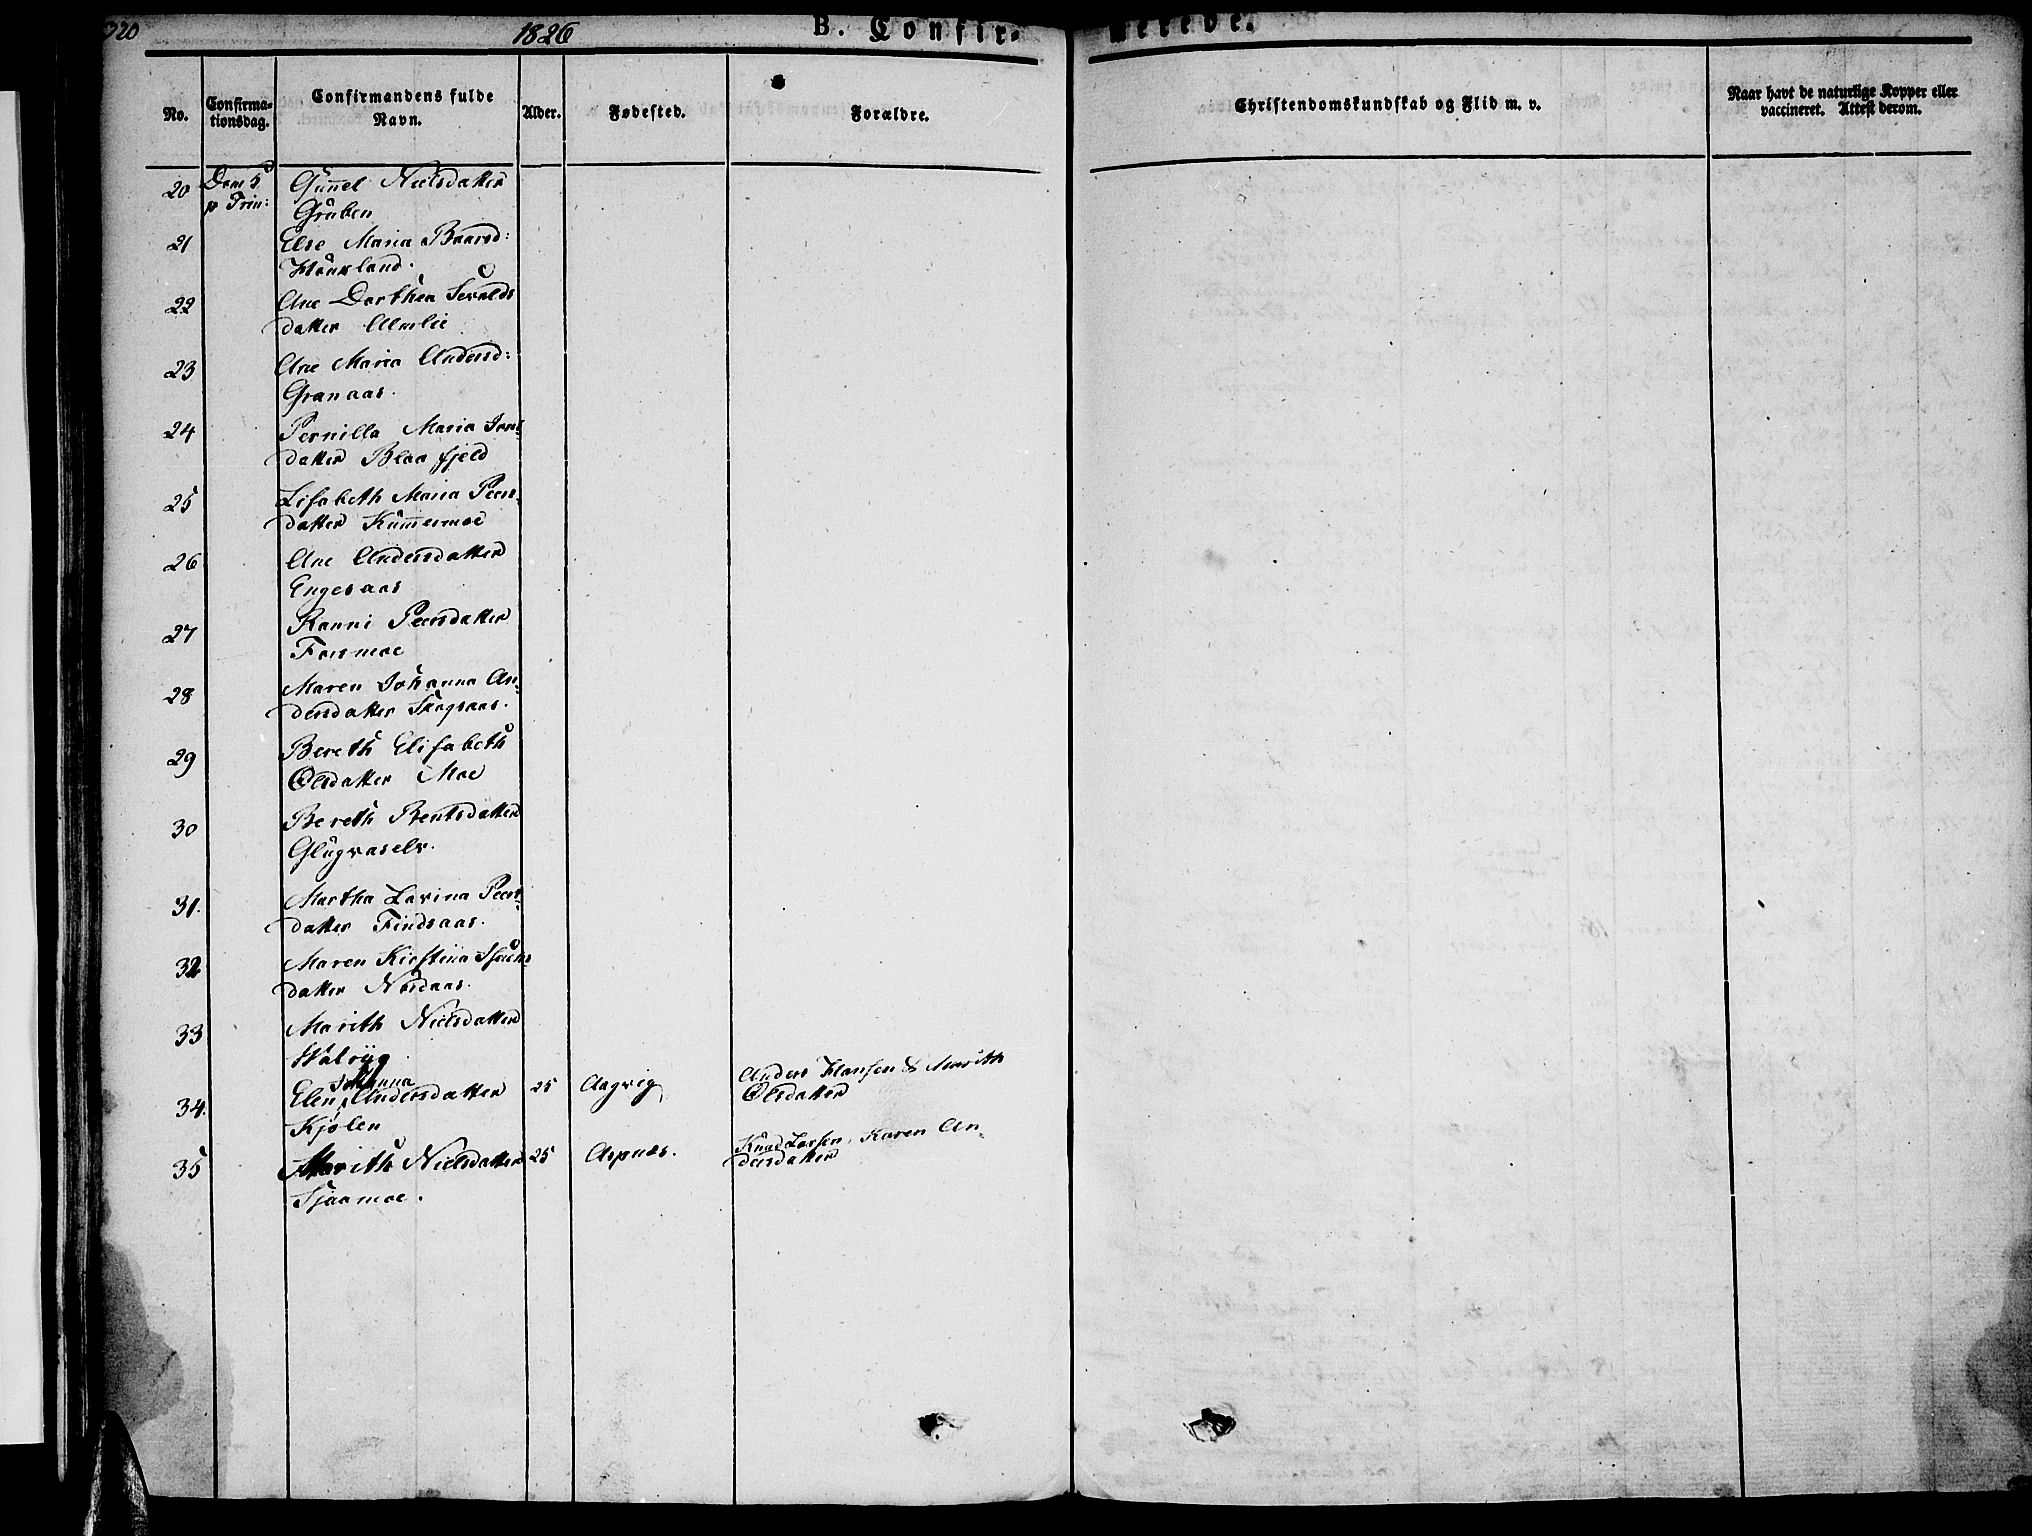 320 1826 B. Confir- merede.
No. Confirma-tionsdag. Confirmandens fulde Navn. Alder. Fødested. Forældre. Christendomskundskab og Flid m. v. Naar havt de naturlige Kopper eller vaccineret. Attest derom.
20 Dom 5 Gunnel Nielsdatter
p Trin: Gruben
21 Else Maria Baarsd:
Haukland.
22 Ane Dorthea Sevalds
datter Almlie
23 Ane Maria Andersd:
Granaas.
24 Pernilla Maria Jons-
datter Blaafjeld
25 Lisabeth Maria Peers-
datter Kummermoe
26 Ane Andersdatter
Engesaas
27 Ranni Peersdatter
Formoe
28 Maren Johanna An-
dersdatter Skogsaas.
29 Bereth Elisabeth
Olsdatter Moe
30 Bereth Bentsdatter
Glugvaselv.
31. Martha Lavina Peers-
datter Findsaas.
32 Maren Kirstina
datter Nordaas.
33 Marith Nielsdatter
Johanna
34. Elen Andersdatter 25 Aagvig Anders Hansen & Marith
Kjølen Olsdatter
35 Marith Nielsdatter 25 Aspnæs. Knud Larsen, Karen An-
Sjaamoe. dersdatter